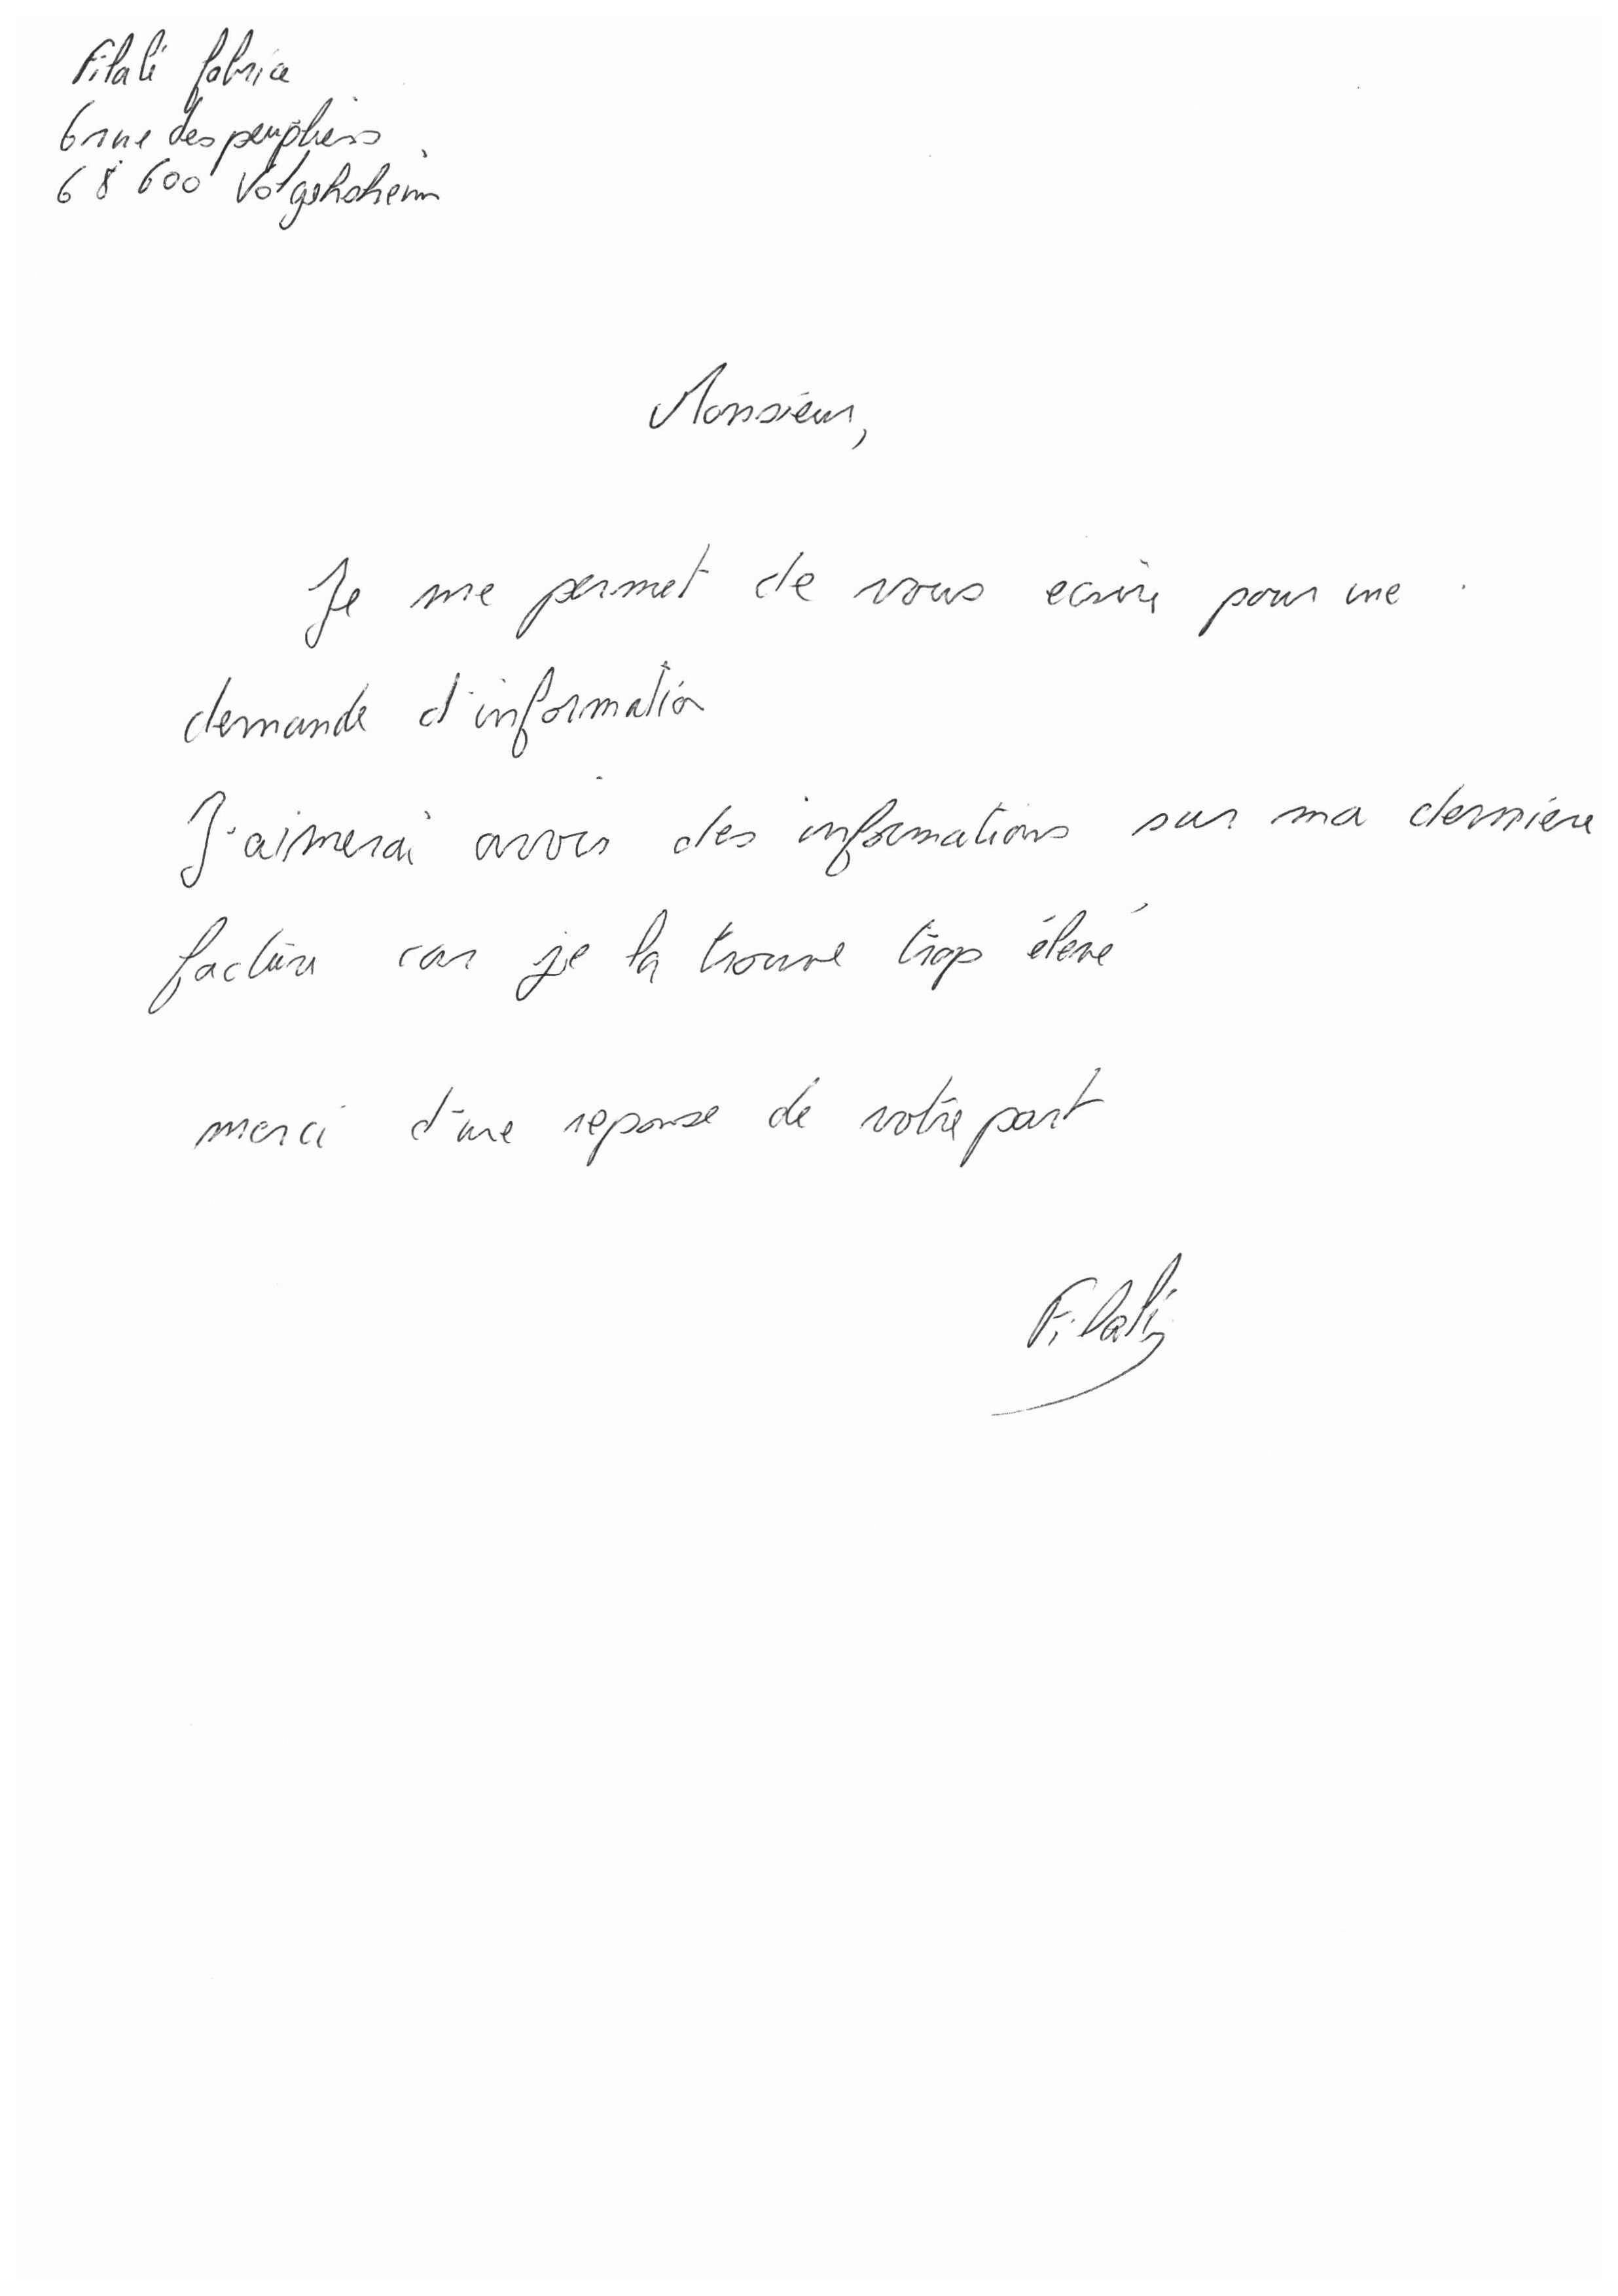 Filali fabrice
6 rue des peupliers
68600 Volgelsheim
Monsieur,
Je me permet de vous ecrire pour une
demande d'information
J'aimerai avoir des informations sur ma dernière
facture car je la trouve trop élevé
merci d'une reponse de votre part
Filali